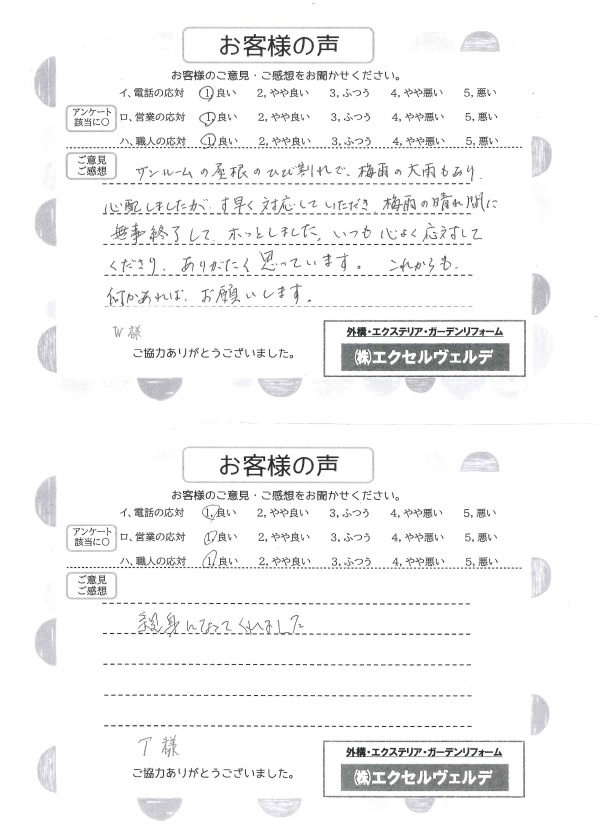 お客様の声
お客様のご意見・ご感想をお聞かせください。
アンケート
該当に○
イ、電話の応対 1,良い 2,やや良い 3,ふつう 4,やや悪い 5,悪い
ロ、営業の応対 1,良い 2,やや良い 3,ふつう 4,やや悪い 5,悪い
ハ、職人の応対 1,良い 2,やや良い 3,ふつう 4,やや悪い 5,悪い
ご意見
ご感想
サンルームの屋根のひび割れで、梅雨の大雨もあり、
心配しましたが、す早く対応していただき、梅雨の晴れ間に
無事終了して、ホッとしました。いつも心よく応対して
くださり、ありがたく思っています。 これからも、
何かあれば、お願いします。
W様
ご協力ありがとうございました。
外構・エクステリア・ガーデンリフォーム
㈱エクセルヴェルデ
お客様の声
お客様のご意見・ご感想をお聞かせください。
アンケート
該当に○
イ、電話の応対 1,良い 2,やや良い 3,ふつう 4,やや悪い 5,悪い
ロ、営業の応対 1,良い 2,やや良い 3,ふつう 4,やや悪い 5,悪い
ハ、職人の応対 1,良い 2,やや良い 3,ふつう 4,やや悪い 5,悪い
ご意見
ご感想
親身になってくれました
T様
ご協力ありがとうございました。
外構・エクステリア・ガーデンリフォーム
㈱エクセルヴェルデ